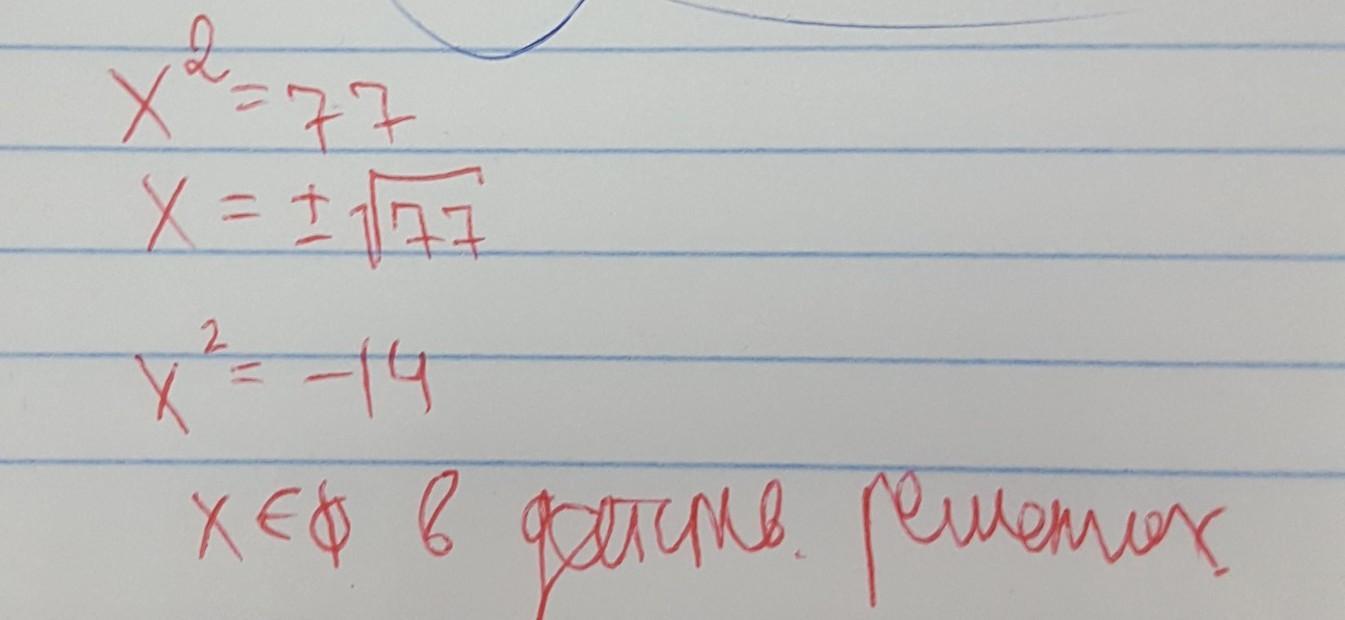 x² = 77
x = ±√77
x² = -14
x ∈ ∅ в действ. решениях.